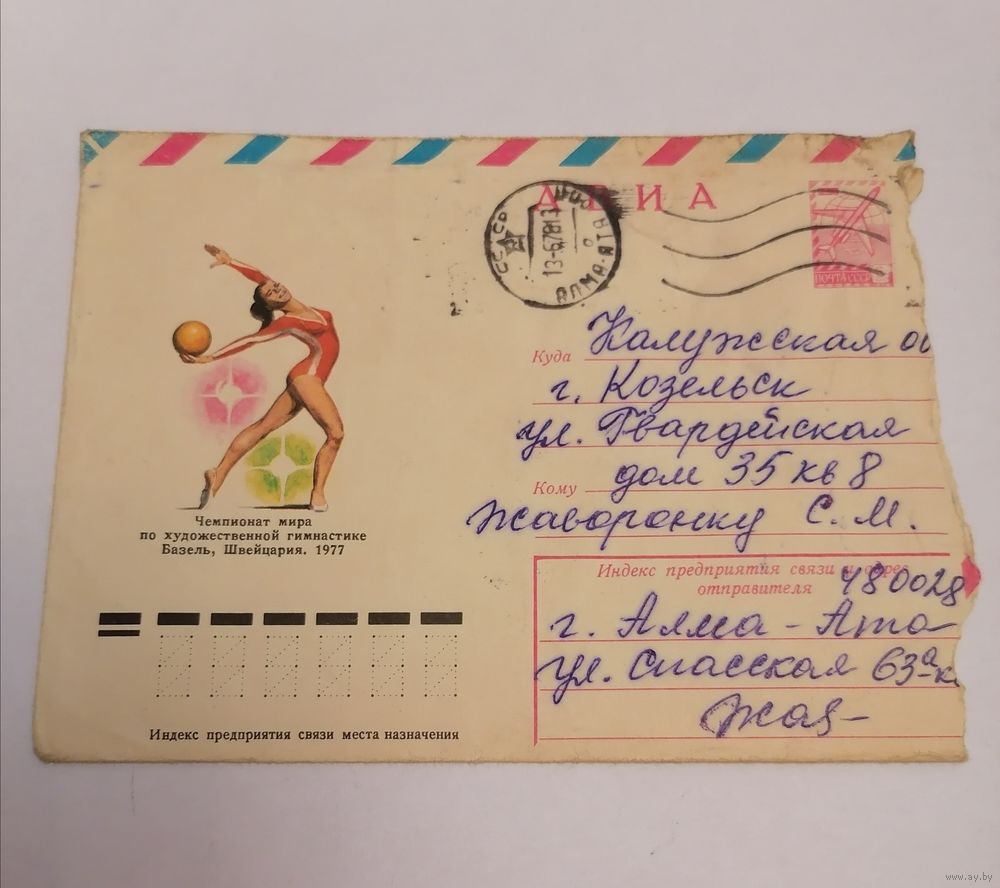 АВИА
СССР
13-67813
АЛМА-АТА
ПОЧТА СССР
Куда Калужская об
г. Козельск
ул. Гвардейская
дом 35 кв 8
Кому
Жаворонку С. М.
Чемпионат мира
по художественной гимнастике
Базель, Швейцария. 1977
Индекс предприятия связи и адрес
отправителя 480028
г. Алма-Ата
ул. Спасская 63а-к
Жав-
Индекс предприятия связи места назначения
www.ay.by